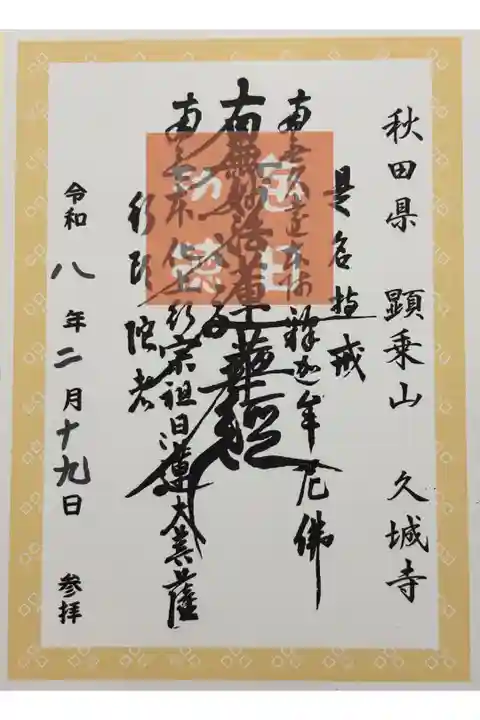 秋田県 顕乗山 久城寺
是名持戒
南無久遠本佛釋迦牟尼佛
南無妙法蓮華経
南無本化上行宗祖日蓮大菩薩
行頭陀者
令和八年二月十九日 参拝